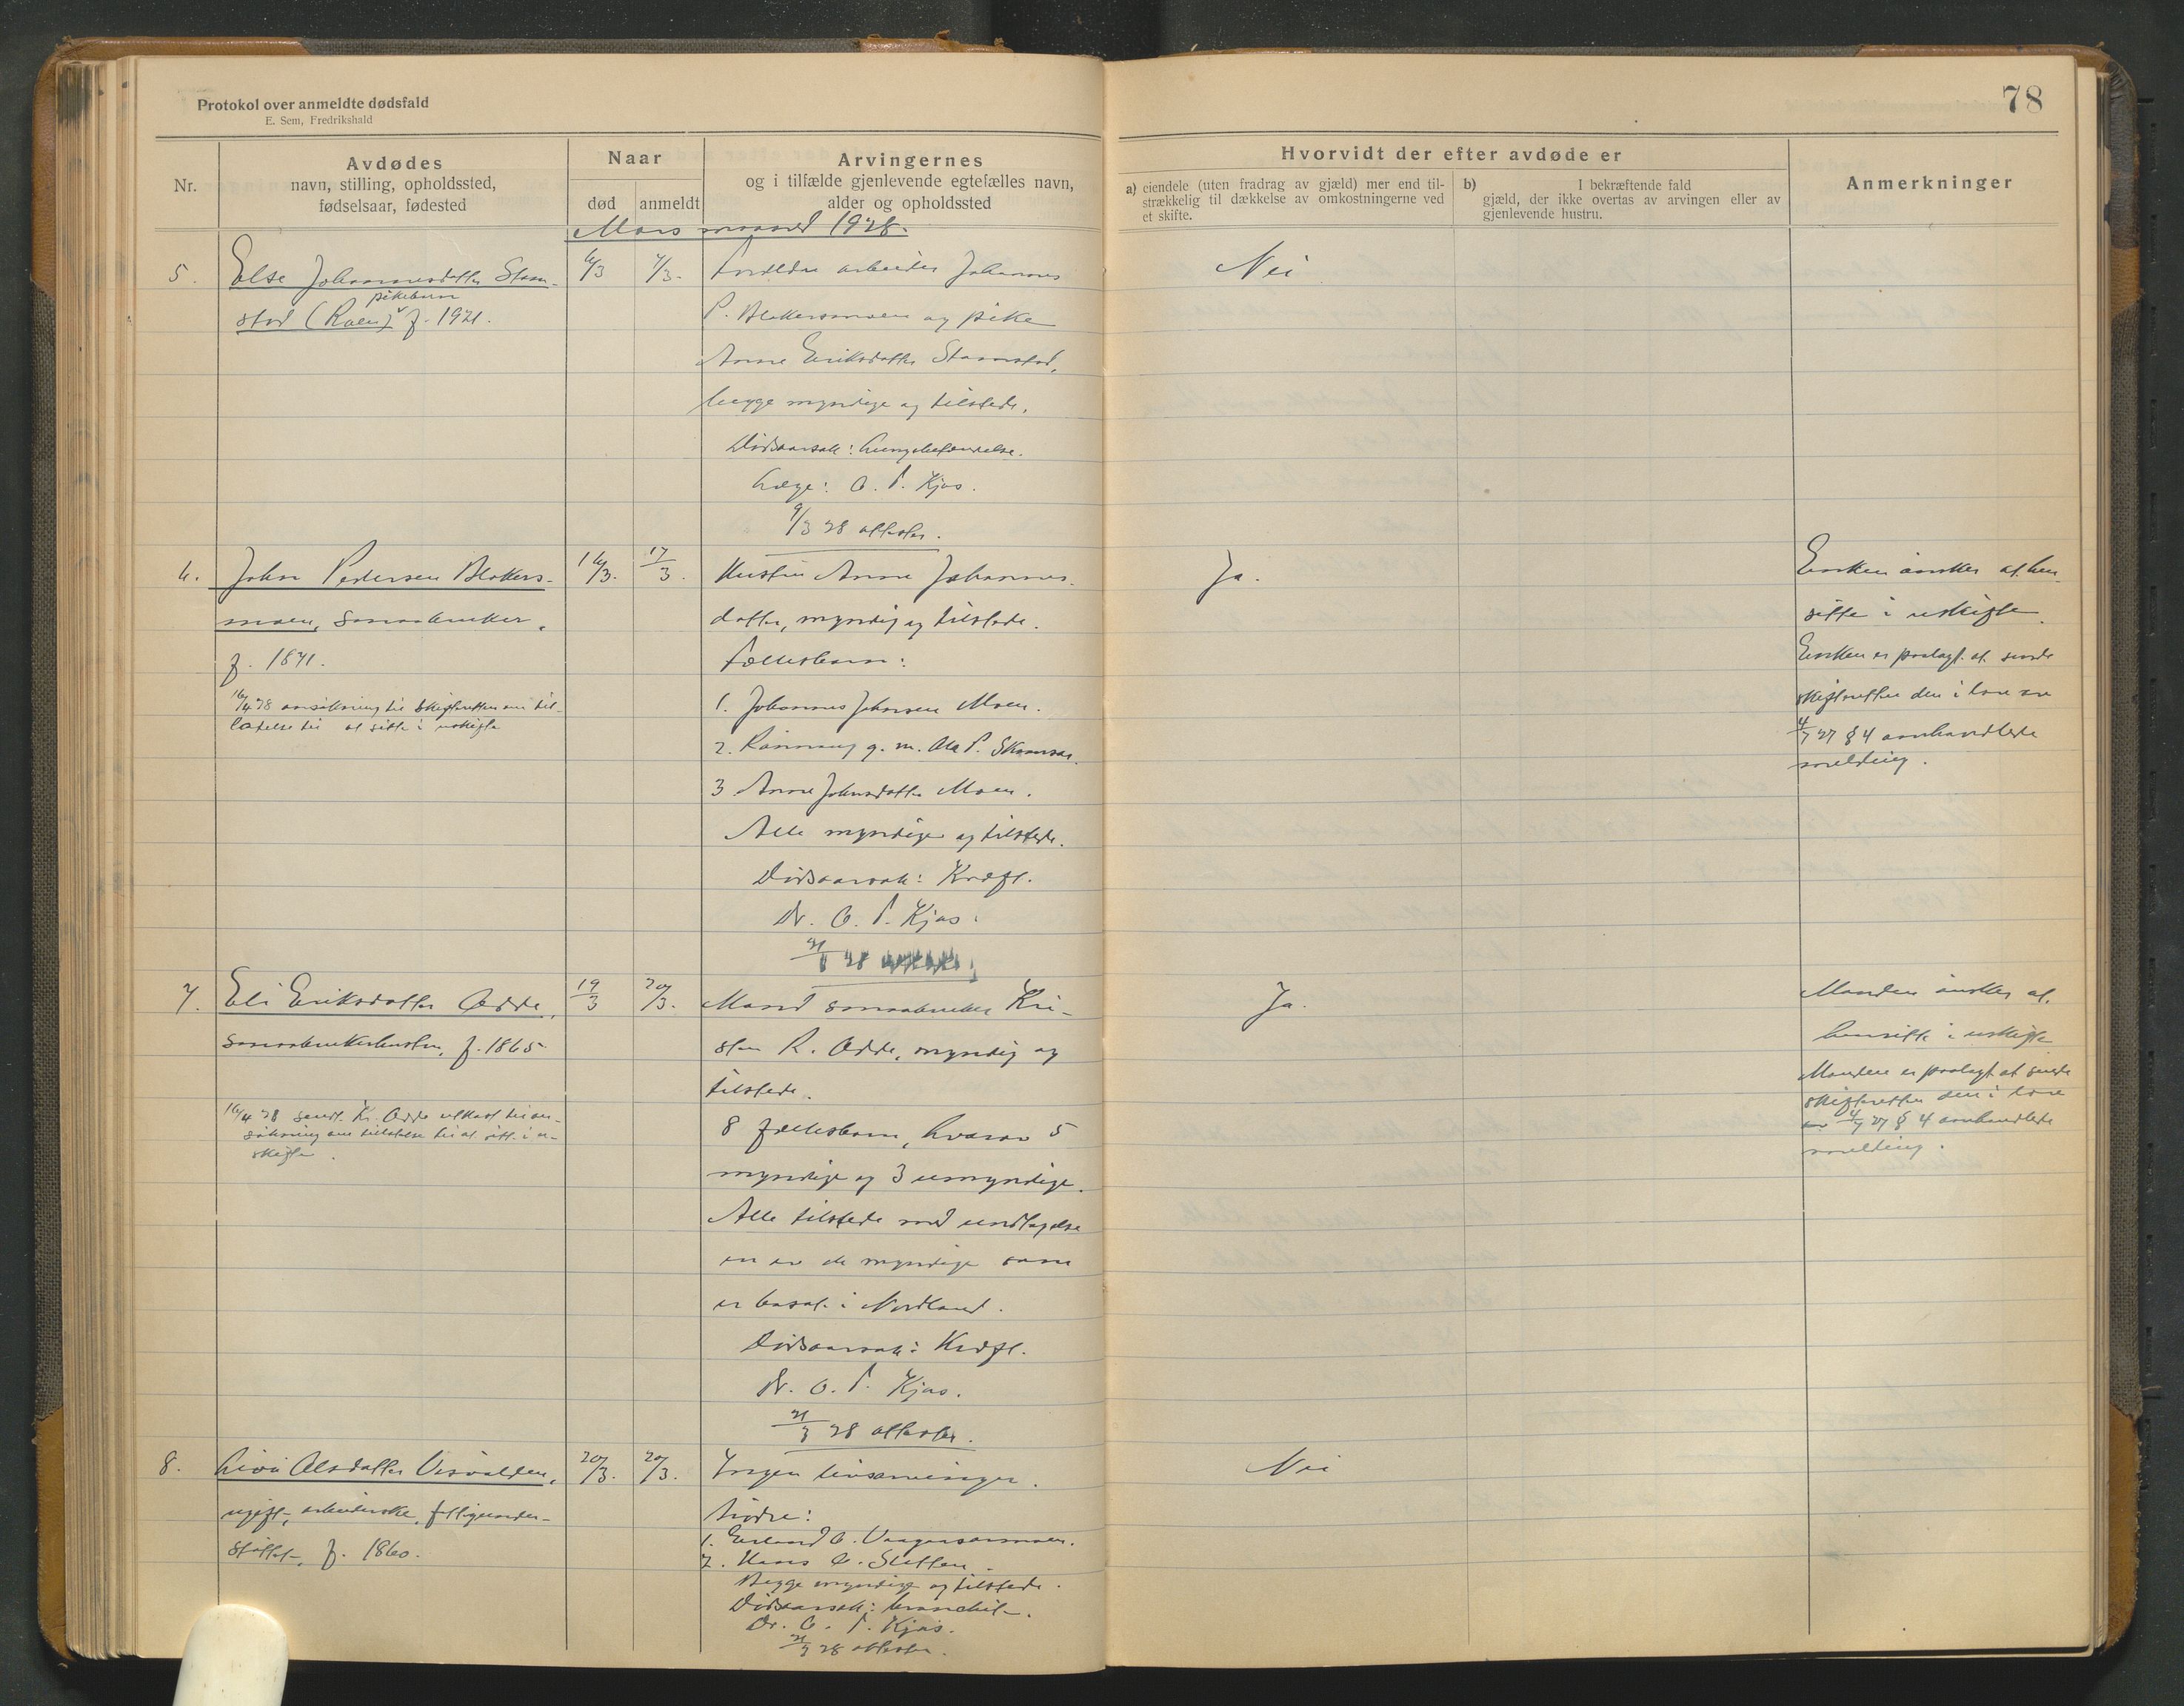 Protokol over anmeldte dødsfald
E. Sem, Fredrikshald
78
Nr.
Avdødes
navn, stilling, opholdssted,
fødselsaar, fødested
Naar
død
anmeldt
Arvingernes
og i tilfælde gjenlevende egtefælles navn,
alder og opholdssted
Hvorvidt der efter avdøde er
a) eiendele (uten fradrag av gjæld) mer end til-
strækkelig til dækkelse av omkostningerne ved
et skifte.
b) I bekræftende fald
gjæld, der ikke overtas av arvingen eller av
gjenlevende hustru.
Anmerkninger
Mars maaned 1928.
5. Else Johannesdatter Stam-
pikebarn
stad (Roen) f. 1921.
6/3 7/3.
Foreldre arbeider Johannes
P. Blakersmoen og pike
Anne Eriksdatter Stamstad,
begge myndige og tilstede.
Dødsaarsak: Lungebetændelse.
Læge: O. P. Kjos.
9/3 28 attester.
Nei
6. Johan Pedersen Blakers-
moen, smaabruker,
f. 1871.
16/4 28 ansökning til skifteretten om til-
latelse til at sitte i uskifte
16/3. 17/3.
Hustru Anne Johannes-
datter, myndig og tilstede.
Fællesbarn:
1. Johannes Johansen Moen.
2. Rönnaug g. m. Ole P.
3 Anne Johnsdatter Moen.
Alle myndige og tilstede.
Dødsaarsak: Kræft.
Dr. O. P. Kjos.
28
Ja.
Enken önsker at hen-
sitte i uskifte.
Enken er paalagt at sende
skifteretten den i lov av
4/7 27 § 4 omhandlede
melding.
7. Eli Eriksdatter Odde,
smaabrukerhustru, f. 1865
16/4 28 sendt Kr. Odde utkast til an-
sökning om tillatelse til at sitte i u-
skifte.
19/3 20/3.
Mand smaabruker Kri-
sten R. Odde, myndig og
tilstede.
8 fællesbarn, hvorav 5
myndige og 3 umyndige.
Alle tilstede med undtagelse
en av de myndige som
er bosat i Nordland.
Dødsaarsak: Kræft.
Dr. O. P. Kjos.
21/3 28 attester.
Ja.
Manden önsker at
hensitte i uskifte
Manden er paalagt at sende
skifteretten den i lov
av 4/7 27 § 4 omhandlede
melding.
8. Livi Olsdatter
ugift, arbeiderske, fattigunder-
støttet, f. 1860.
20/3. 20/3.
Ingen livsarvinger.
Brødre:
1. Erland O.
2. Hans O. Sletten.
Begge myndige og tilstede.
Dødsaarsak: bronchit.
Dr. O. P. Kjos.
21/3 28 attester.
Nei